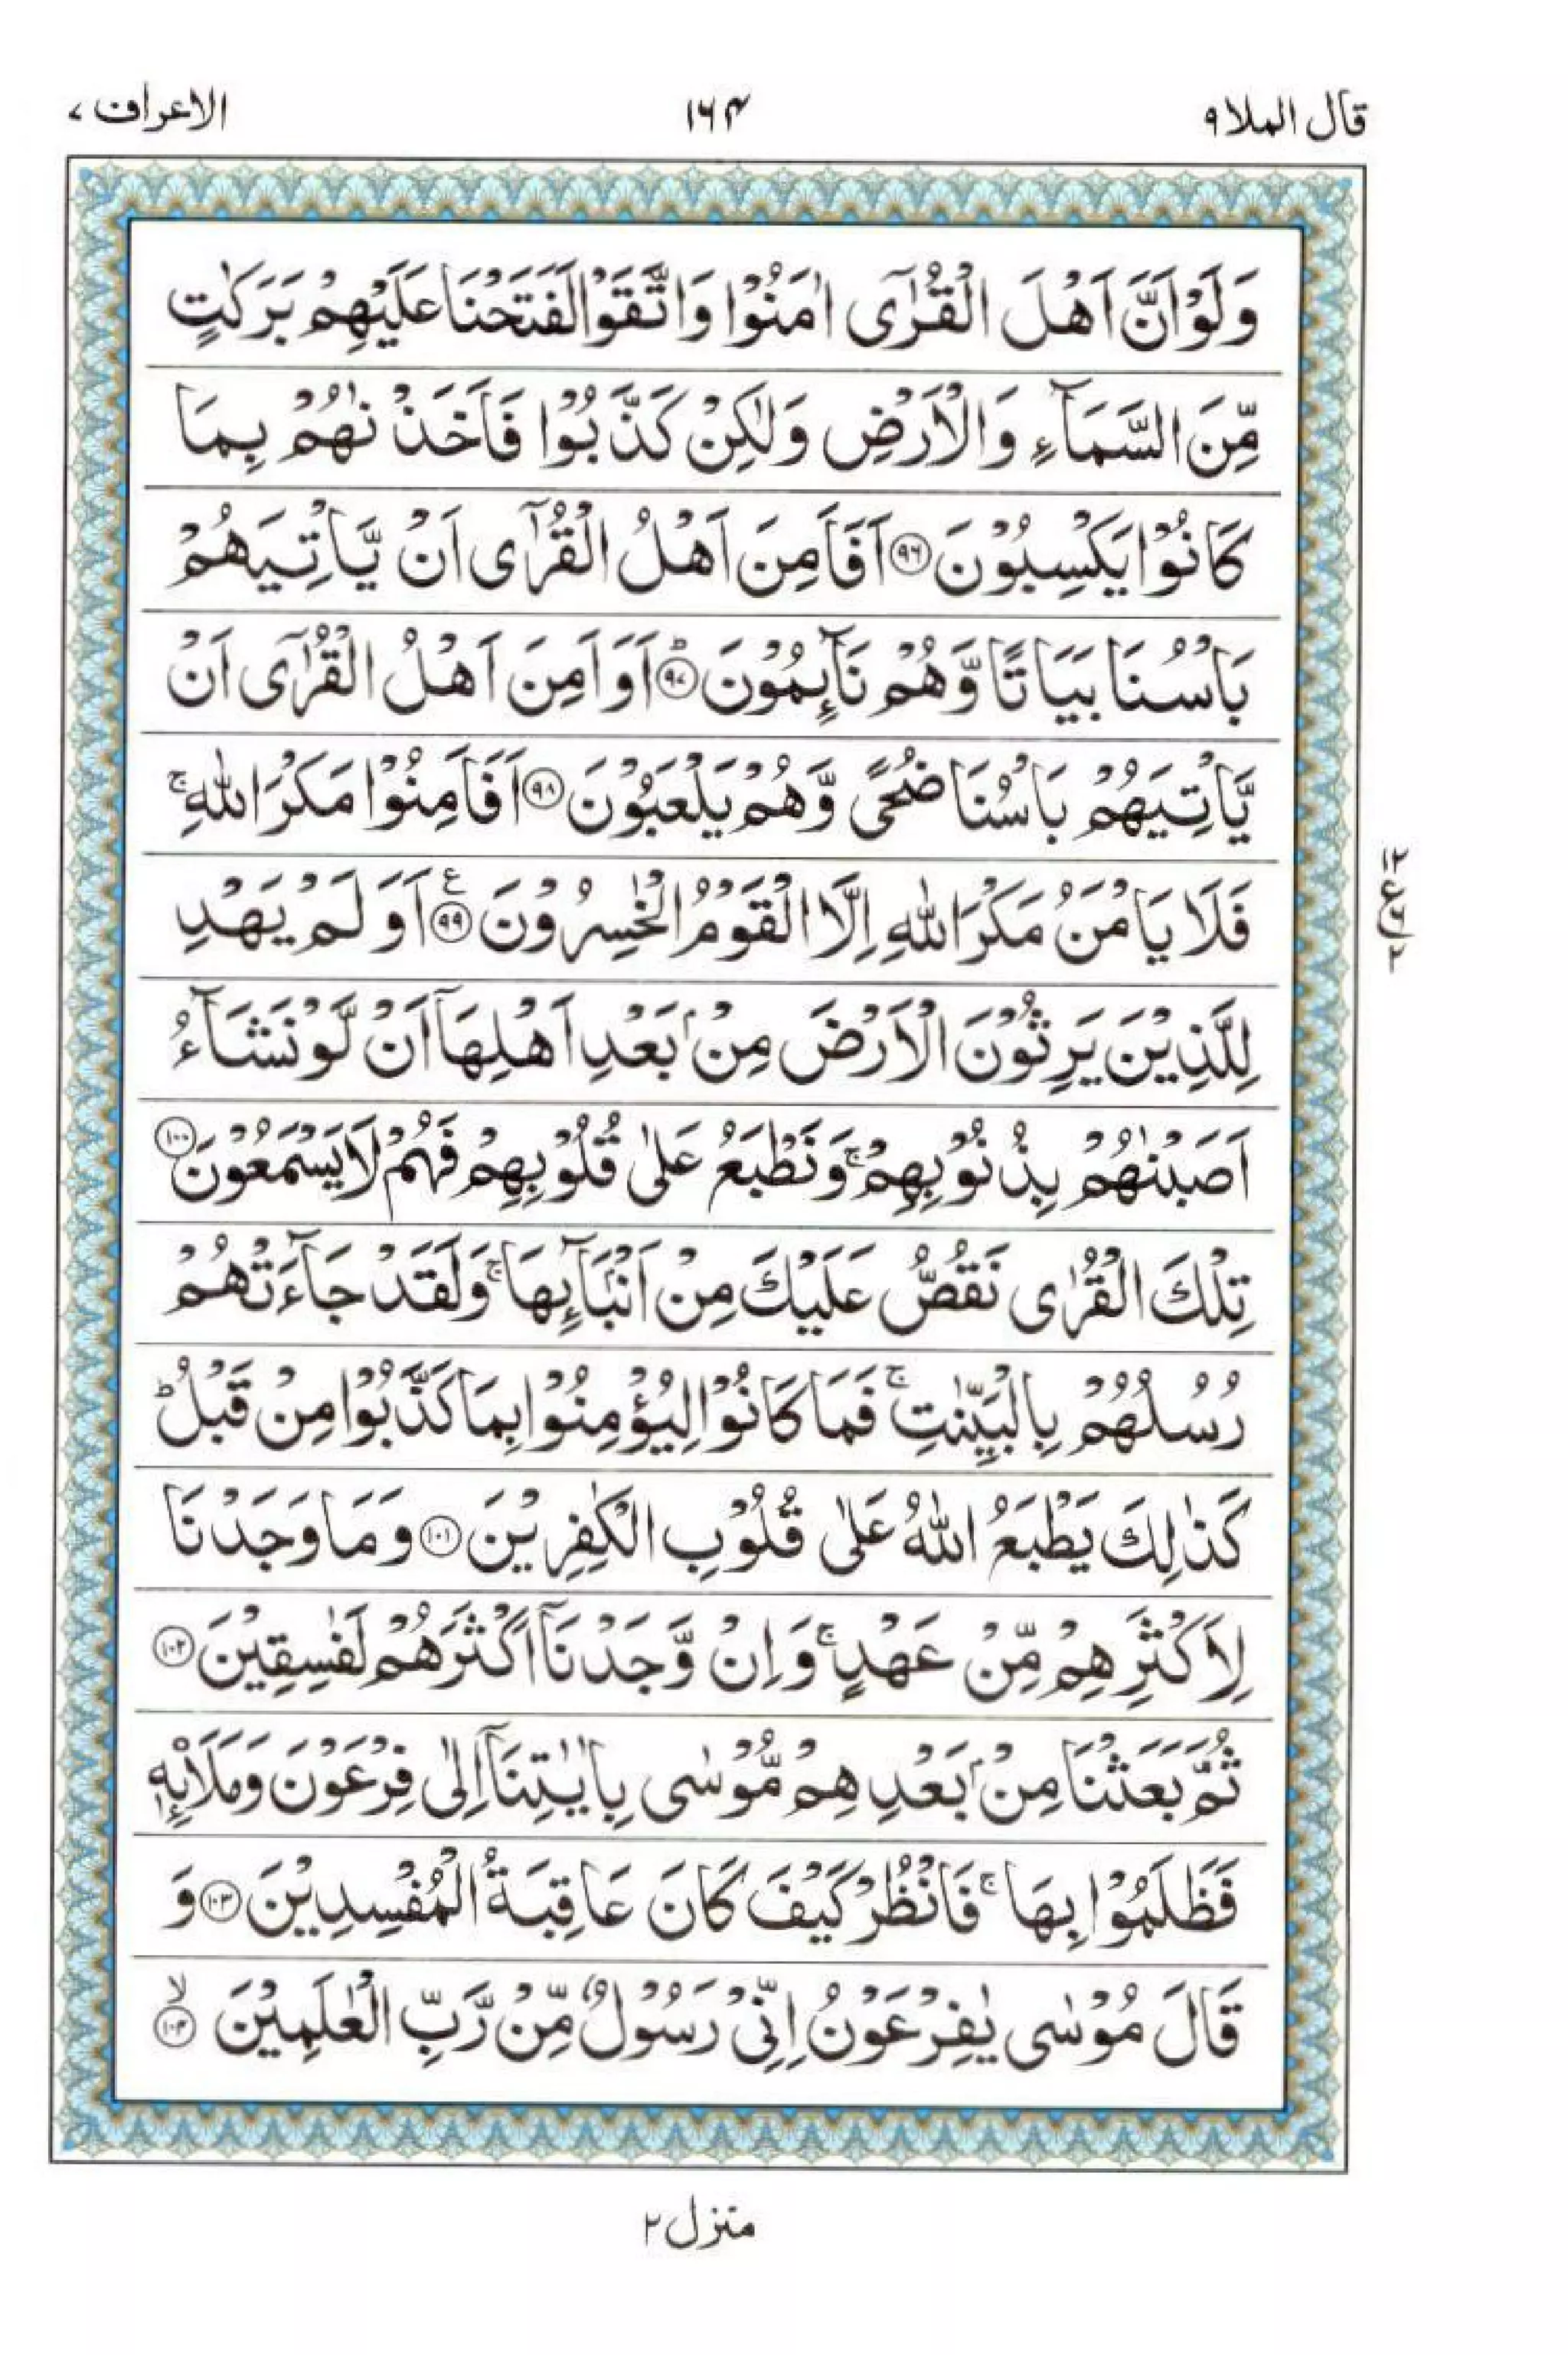 قال الملا ٩
١٦٤
الاعراف ٧
وَلَوْ اَنَّ اَهْلَ الْقُرٰٓى اٰمَنُوْا وَاتَّقَوْا لَفَتَحْنَا عَلَيْهِمْ بَرَكٰتٍ
مِّنَ السَّمَآءِ وَالْاَرْضِ وَلٰكِنْ كَذَّبُوْا فَاَخَذْنٰهُمْ بِمَا
كَانُوْا يَكْسِبُوْنَ ﴿٩٦﴾ اَفَاَمِنَ اَهْلُ الْقُرٰٓى اَنْ يَّاْتِيَهُمْ
بَاْسُنَا بَيَاتًا وَّهُمْ نَآئِمُوْنَ ؕ﴿٩٧﴾ اَوَاَمِنَ اَهْلُ الْقُرٰٓى اَنْ
يَّاْتِيَهُمْ بَاْسُنَا ضُحًى وَّهُمْ يَلْعَبُوْنَ ﴿٩٨﴾ اَفَاَمِنُوْا مَكْرَ اللّٰهِ ۚ
فَلَا يَاْمَنُ مَكْرَ اللّٰهِ اِلَّا الْقَوْمُ الْخٰسِرُوْنَ ع ﴿٩٩﴾ اَوَلَمْ يَهْدِ
لِلَّذِيْنَ يَرِثُوْنَ الْاَرْضَ مِنْۢ بَعْدِ اَهْلِهَاۤ اَنْ لَّوْ نَشَآءُ
اَصَبْنٰهُمْ بِذُنُوْبِهِمْ ۚ وَنَطْبَعُ عَلٰى قُلُوْبِهِمْ فَهُمْ لَا يَسْمَعُوْنَ ﴿١٠٠﴾
تِلْكَ الْقُرٰى نَقُصُّ عَلَيْكَ مِنْ اَنْۢبَآئِهَا ۚ وَلَقَدْ جَآءَتْهُمْ
رُسُلُهُمْ بِالْبَيِّنٰتِ ۚ فَمَا كَانُوْا لِيُؤْمِنُوْا بِمَا كَذَّبُوْا مِنْ قَبْلُ ؕ
كَذٰلِكَ يَطْبَعُ اللّٰهُ عَلٰى قُلُوْبِ الْكٰفِرِيْنَ ﴿١٠١﴾ وَمَا وَجَدْنَا
لِاَكْثَرِهِمْ مِّنْ عَهْدٍ ۚ وَاِنْ وَّجَدْنَاۤ اَكْثَرَهُمْ لَفٰسِقِيْنَ ﴿١٠٢﴾
ثُمَّ بَعَثْنَا مِنْۢ بَعْدِهِمْ مُّوْسٰى بِاٰيٰتِنَاۤ اِلٰى فِرْعَوْنَ وَمَلَا۟ئِهٖ
فَظَلَمُوْا بِهَا ۚ فَانْظُرْ كَيْفَ كَانَ عَاقِبَةُ الْمُفْسِدِيْنَ ﴿١٠٣﴾ وَ
قَالَ مُوْسٰى يٰفِرْعَوْنُ اِنِّىْ رَسُوْلٌ مِّنْ رَّبِّ الْعٰلَمِيْنَ ۙ﴿١٠٤﴾
١٢
ع
٢
منزل ٢